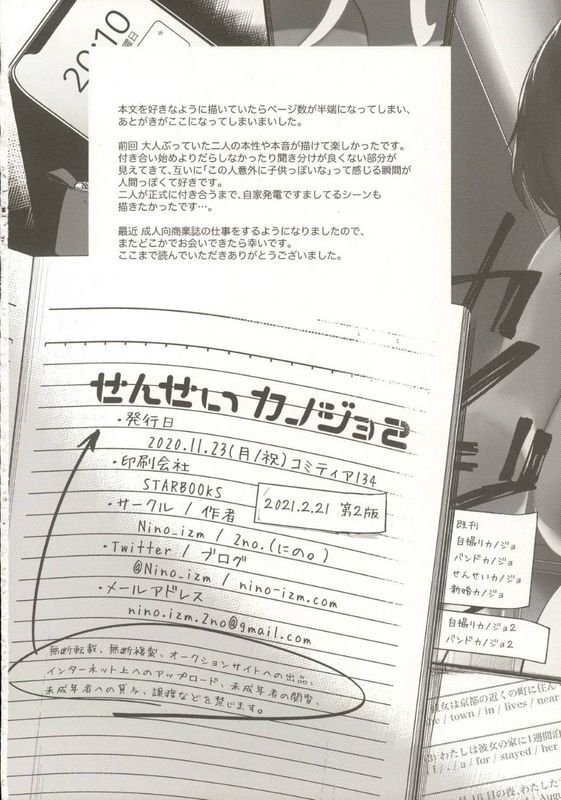 20:10
曜日
本文を好きなように描いていたらページ数が半端になってしまい、
あとがきがここになってしまいまいました。
前回 大人ぶっていた二人の本性や本音が描けて楽しかったです。
付き合い始めよりだらしなかったり聞き分けが良くない部分が
見えてきて、互いに「この人意外に子供っぽいな」って感じる瞬間が
人間っぽくて好きです。
二人が正式に付き合うまで、自家発電ですましてるシーンも
描きたかったです…。
最近 成人向商業誌の仕事をするようになりましたので、
またどこかでお会いできたら幸いです。
ここまで読んでいただきありがとうございました。
せんせいカノジョ2
・発行日
2020.11.23(月/祝)コミティア134
・印刷会社
STARBOOKS
2021.2.21 第2版
・サークル / 作者
Nino_izm / 2no.(にの。)
・Twitter / ブログ
@Nino_izm / nino-izm.com
・メールアドレス
nino.izm.2no@gmail.com
無断転載、無断複製、オークションサイトへの出品、
インターネット上へのアップロード、未成年者の閲覧、
未成年者への貸与、譲渡などを禁じます。
既刊
自撮りカノジョ
バンドカノジョ
せんせいカノジョ
新婚カノジョ
自撮りカノジョ2
バンドカノジョ2
女は京都の近くの町に住ん
/ town / in / lives / near
わたしは彼女の家に1週間泊
/ a / for / stayed / her